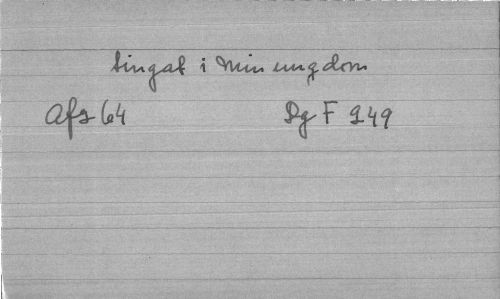 tingat i min ungdom
Afs 64 Dg F 949